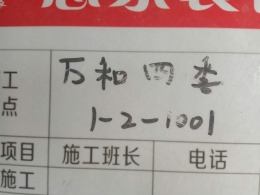 工 万和四季
点 1-2-1001
项目 施工班长 电话
施工